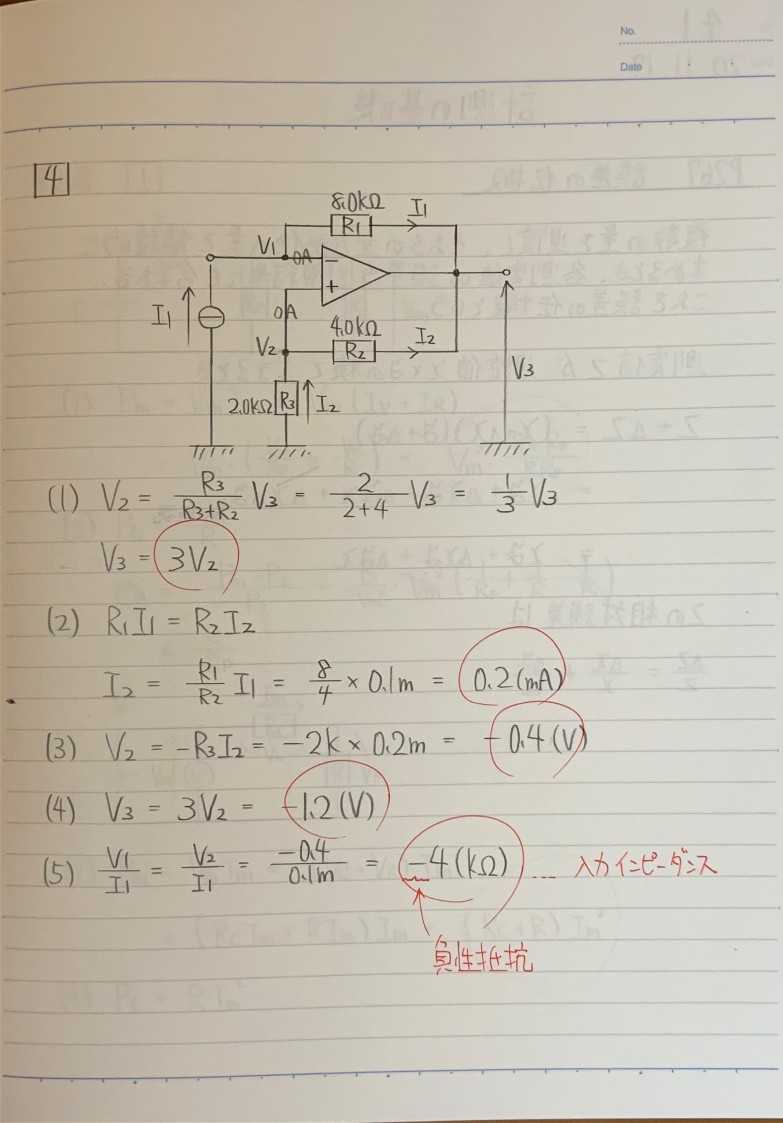 No.
Date
4
8.0kΩ I1
R1
V1 0A −
+
I1 0A 4.0kΩ I2
V2 R2
V3
2.0kΩ R3 I2
(1) V2 = R3/(R3+R2) V3 = 2/(2+4) V3 = 1/3 V3
V3 = 3V2
(2) R1I1 = R2I2
I2 = R1/R2 I1 = 8/4 × 0.1m = 0.2(mA)
(3) V2 = −R3I2 = −2k × 0.2m = −0.4(V)
(4) V3 = 3V2 = −1.2(V)
(5) V1/I1 = V2/I1 = −0.4/0.1m = −4(kΩ) ... 入力インピーダンス
負性抵抗